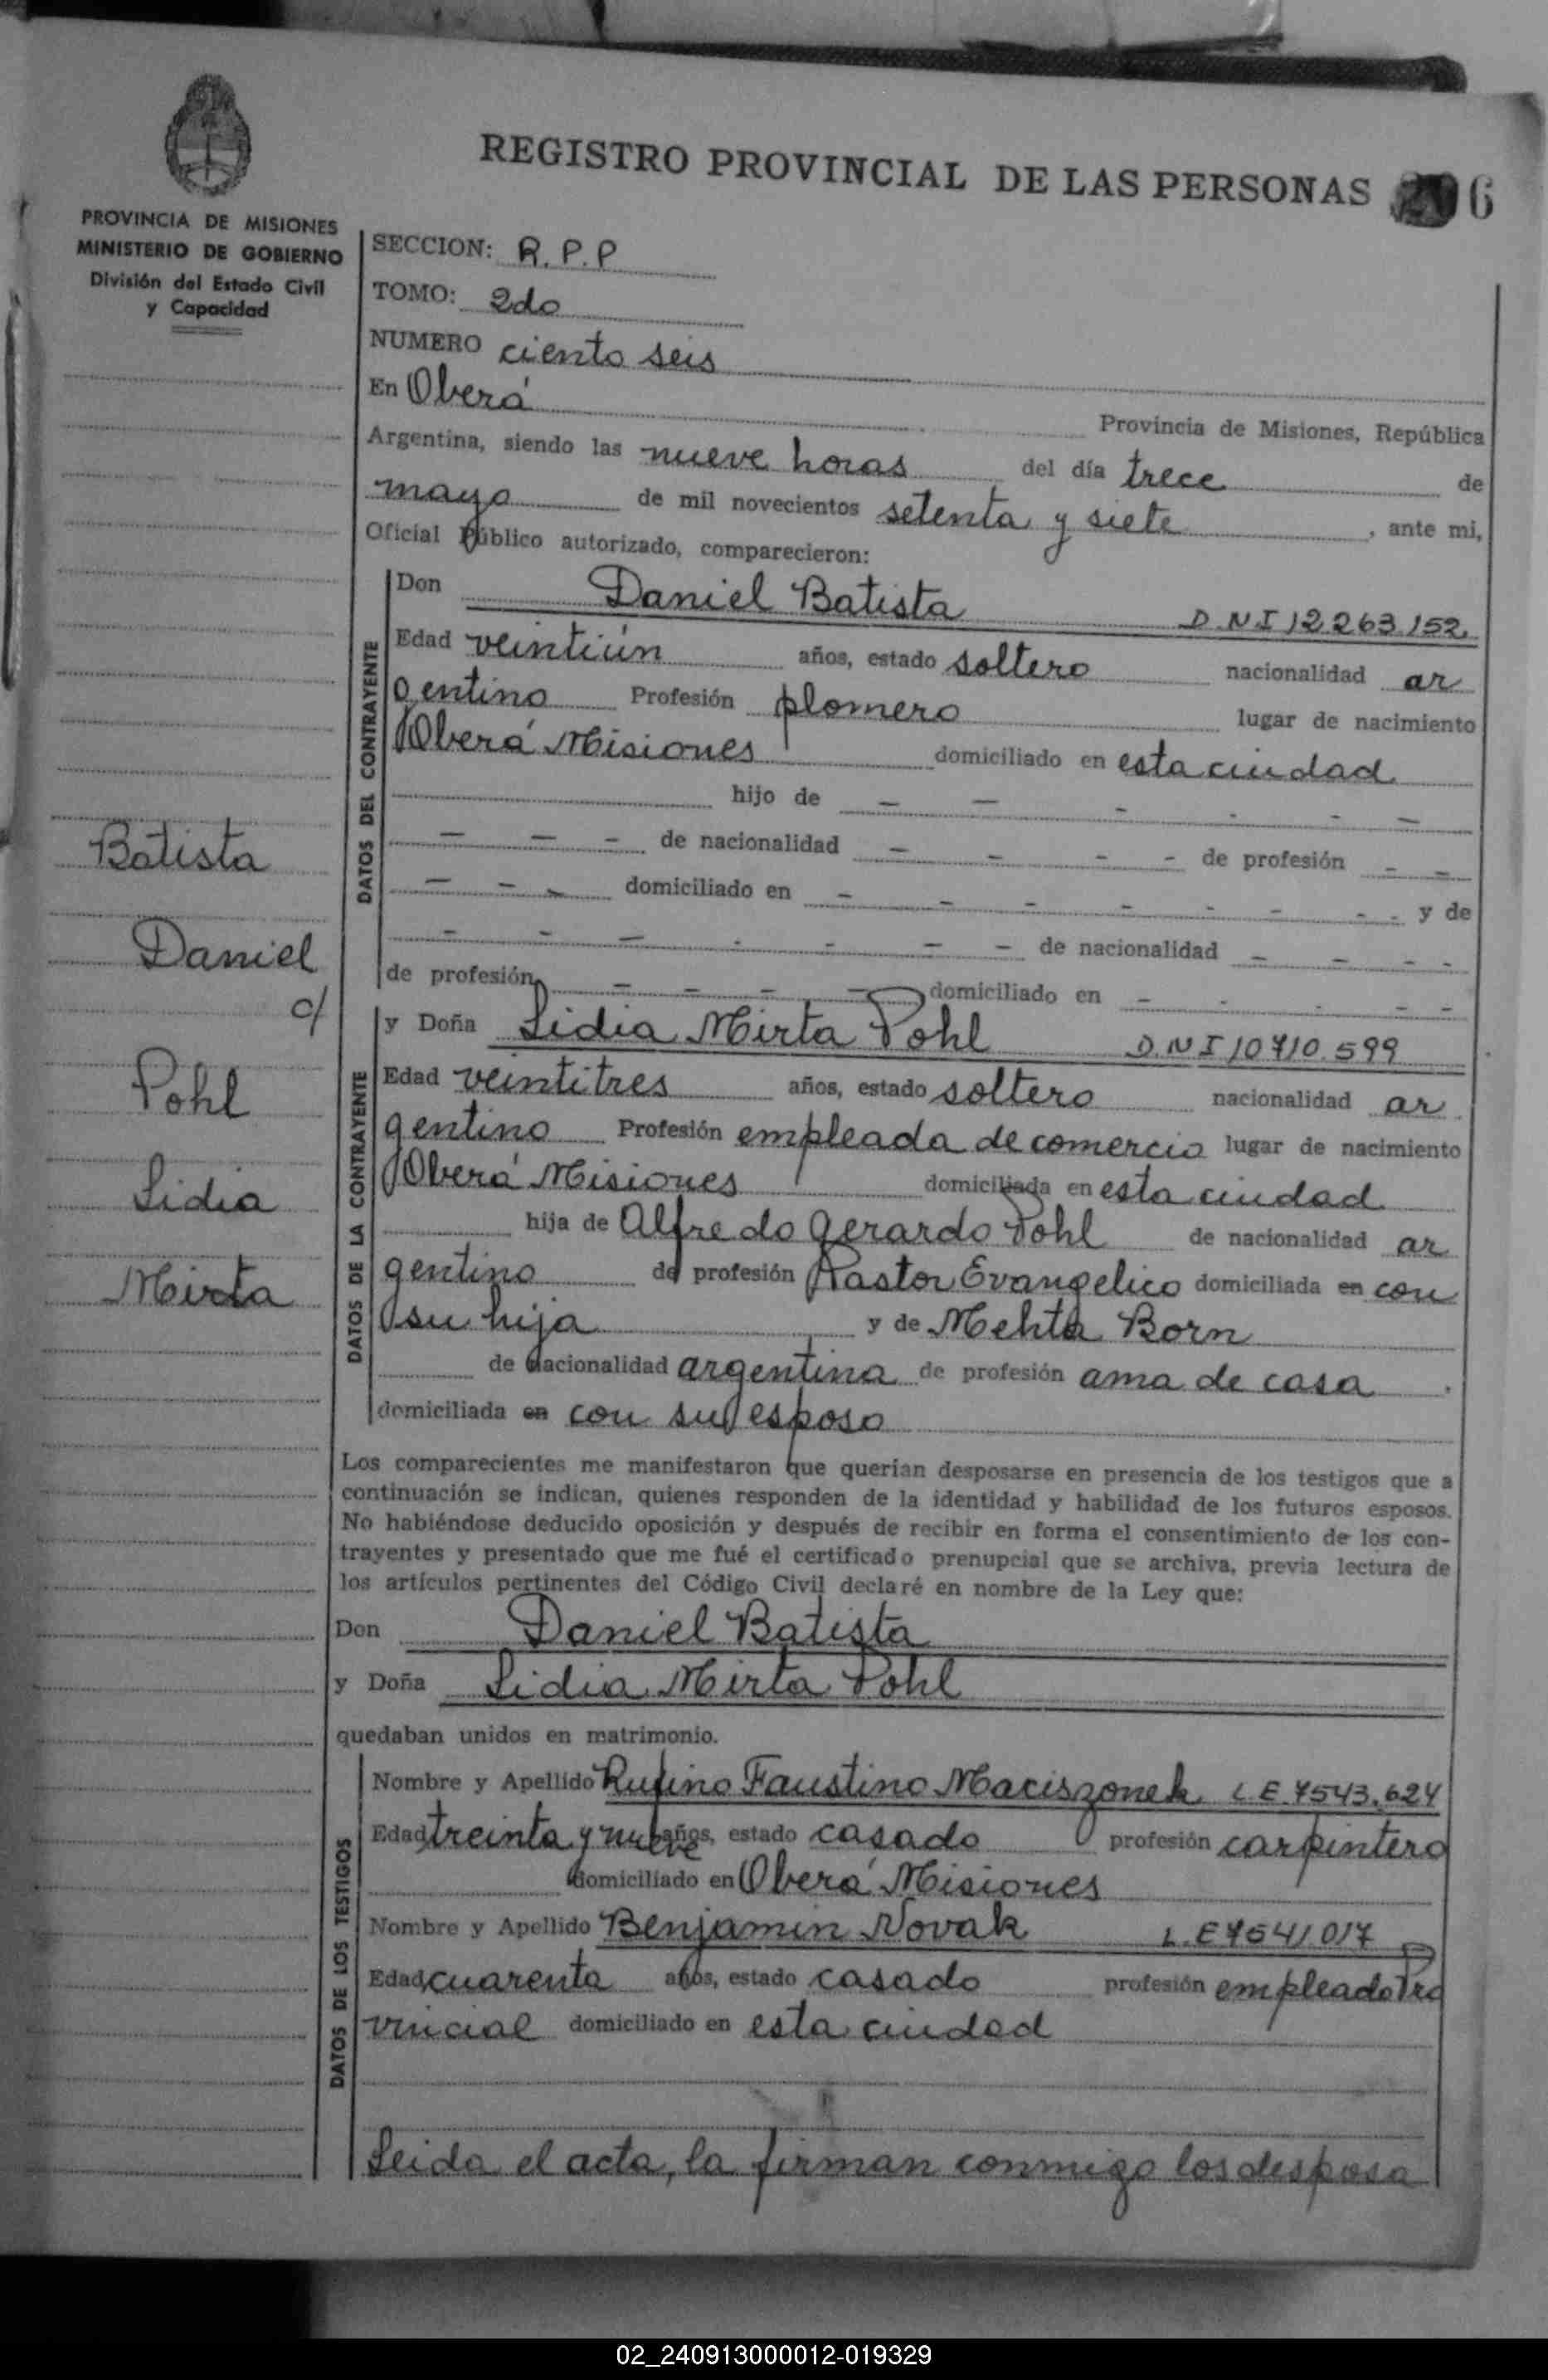 REGISTRO PROVINCIAL DE LAS PERSONAS 6
PROVINCIA DE MISIONES
MINISTERIO DE GOBIERNO
División del Estado Civil
y Capacidad
Batista
Daniel
c/
Pohl
Lidia
Mirta
SECCION: R.P.P
TOMO: 2do
NUMERO ciento seis
En Oberá Provincia de Misiones, República
Argentina, siendo las nueve horas del día trece de
mayo de mil novecientos setenta y siete, ante mi,
Oficial Público autorizado, comparecieron:
DATOS DEL CONTRAYENTE
Don Daniel Batista D.N.I 12.263.152
Edad veintiún años, estado soltero nacionalidad ar
gentino Profesión plomero lugar de nacimiento
Oberá Misiones domiciliado en esta ciudad
hijo de - - - - - -
- - - de nacionalidad - - - - de profesión - -
- - - domiciliado en - - - - - - - - y de
- - - - - - - de nacionalidad - - - -
de profesión - - - - domiciliado en - - - - -
DATOS DE LA CONTRAYENTE
y Doña Lidia Mirta Pohl D.N.I 10710.599
Edad veintitres años, estado soltero nacionalidad ar
gentino Profesión empleada de comercio lugar de nacimiento
Oberá Misiones domiciliada en esta ciudad
hija de Alfredo Gerardo Pohl de nacionalidad ar
gentino de profesión Pastor Evangelico domiciliada en con
su hija y de Mehta Born
de nacionalidad argentina de profesión ama de casa.
domiciliada en con su esposo
Los comparecientes me manifestaron que querían desposarse en presencia de los testigos que a
continuación se indican, quienes responden de la identidad y habilidad de los futuros esposos.
No habiéndose deducido oposición y después de recibir en forma el consentimiento de los con-
trayentes y presentado que me fué el certificado prenupcial que se archiva, previa lectura de
los artículos pertinentes del Código Civil declaré en nombre de la Ley que:
Don Daniel Batista
y Doña Lidia Mirta Pohl
quedaban unidos en matrimonio.
DATOS DE LOS TESTIGOS
Nombre y Apellido Rufino Faustino Maciszonek L.E. 7543.624
Edad treinta y nueve años, estado casado profesión carpintero
domiciliado en Oberá Misiones
Nombre y Apellido Benjamin Novak L.E 7541017
Edad cuarenta años, estado casado profesión empleado Pro
vincial domiciliado en esta ciudad
Leida el acta, la firman conmigo los desposa
02_240913000012-019329